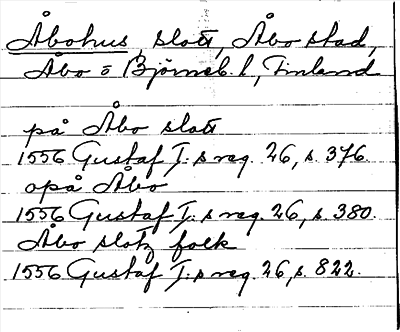 Åbohus, slott, Åbo stad,
Åbo o Björneb. l, Finland
på Åbo slott
1556 Gustaf I:s reg. 26, s. 376.
opå Åbo
1556 Gustaf I:s reg. 26, s. 380.
Åbo slotz folk
1556 Gustaf I:s reg. 26, s. 822.